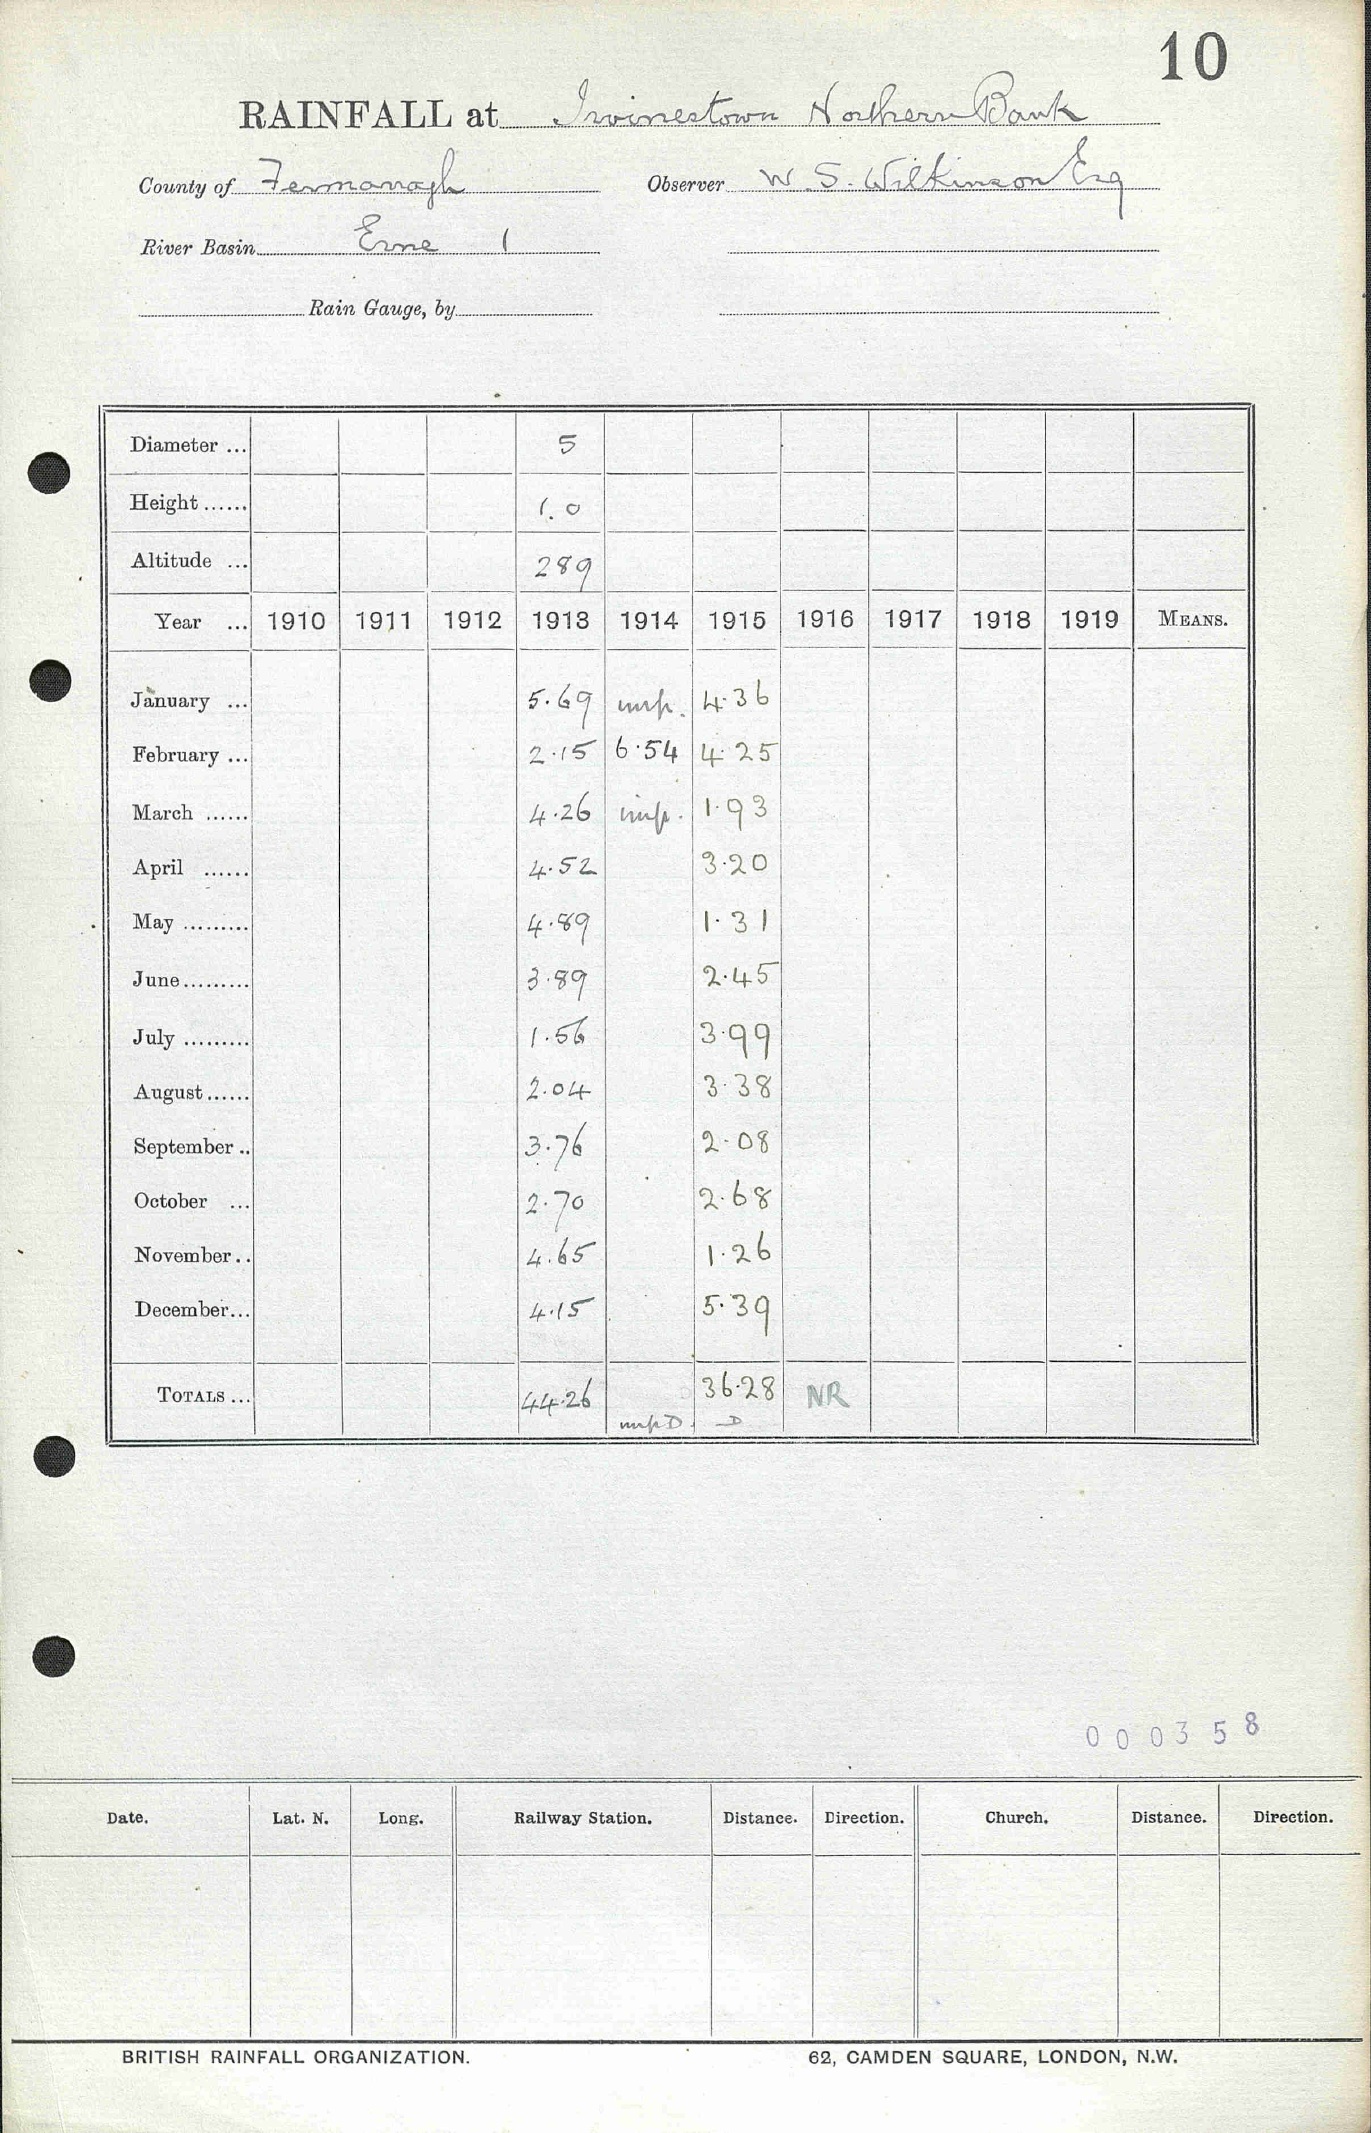 10
RAINFALL at Irvinestown Northern Bank
County of Fermanagh Observer W. S. Wilkinson Esq
River Basin Erne 1
Rain Gauge, by
Diameter ... 5
Height ...... 1.0
Altitude ... 289
Year ... 1910 1911 1912 1913 1914 1915 1916 1917 1918 1919 MEANS.
January ... 5.69 imp. 4.36
February ... 2.15 6.54 4.25
March ...... 4.26 imp. 1.93
April ...... 4.52 3.20
May ......... 4.89 1.31
June ......... 3.89 2.45
July ......... 1.56 3.99
August ...... 2.04 3.38
September .. 3.76 2.08
October ... 2.70 2.68
November .. 4.65 1.26
December ... 4.15 5.39
TOTALS ... 44.26 36.28 NR
imp D. D
000358
Date. Lat. N. Long. Railway Station. Distance. Direction. Church. Distance. Direction.
BRITISH RAINFALL ORGANIZATION. 62, CAMDEN SQUARE, LONDON, N.W.